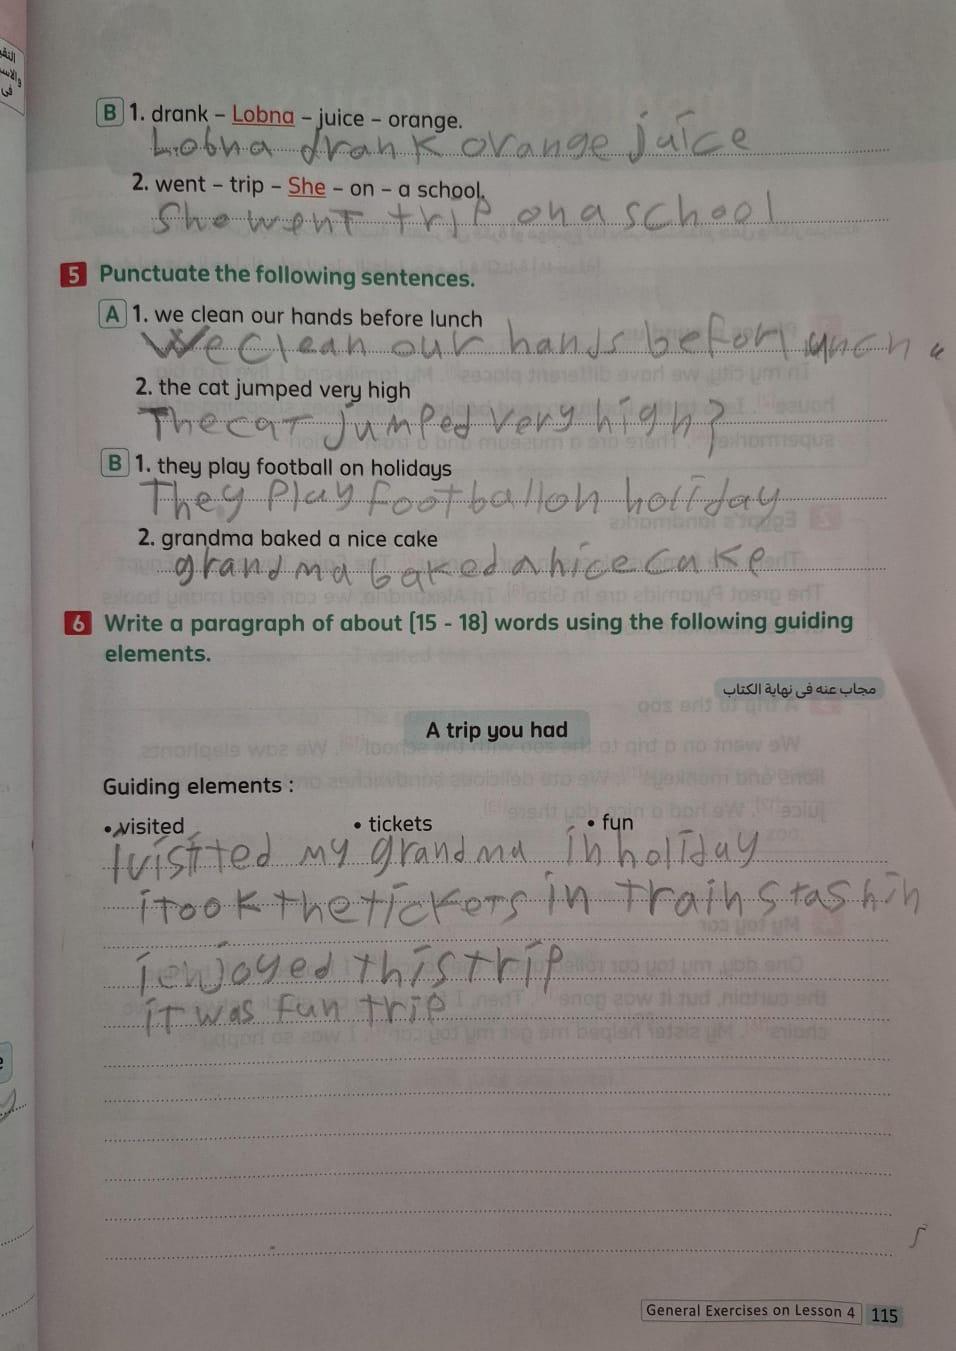 B 1. drank – Lobna – juice – orange.
Lobna drank orange juice
2. went – trip – She – on – a school.
She went trip on a school
5 Punctuate the following sentences.
A 1. we clean our hands before lunch
We clean our hands befor lunch
2. the cat jumped very high
The cat jumped very high?
B 1. they play football on holidays
They Play football on holiday
2. grandma baked a nice cake
grandma baked a nice cake
6 Write a paragraph of about [15 - 18] words using the following guiding
elements.
مجاب عنه فى نهاية الكتاب
A trip you had
Guiding elements :
• visited • tickets • fun
I visitted my grandma in holiday
i took the tickets in train stashin
i enjoyed this trip
it was fun trip
General Exercises on Lesson 4 115